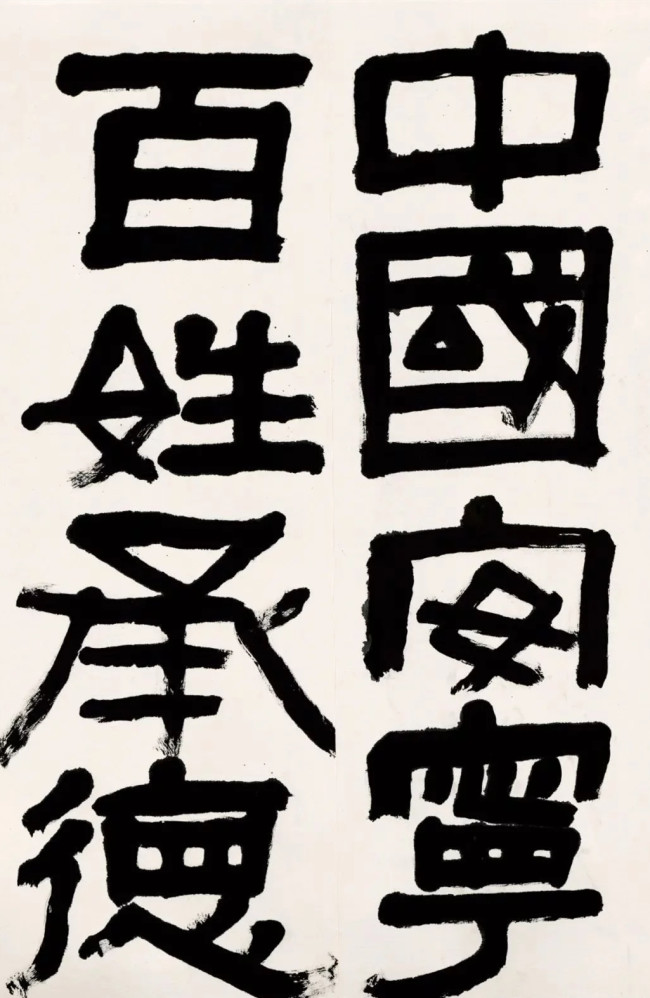 中國安寧
百姓承德